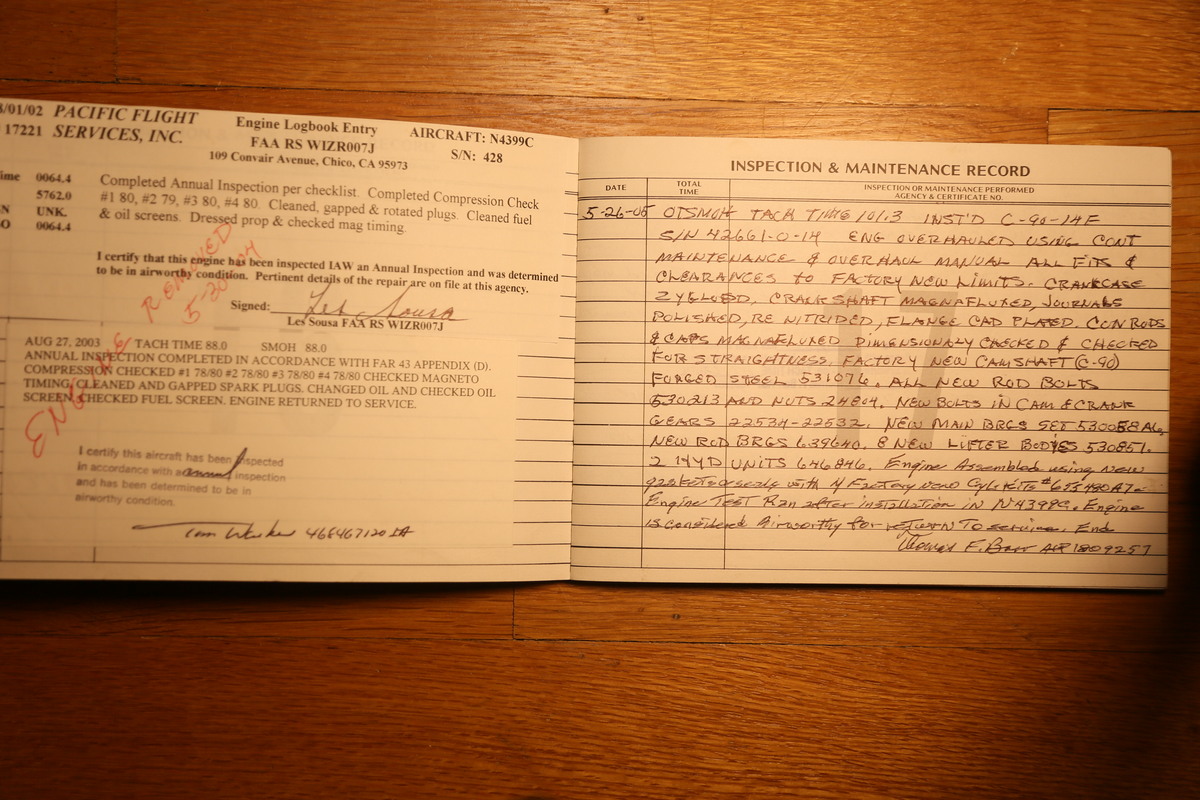 /01/02 PACIFIC FLIGHT
17221 SERVICES, INC.
Engine Logbook Entry
FAA RS WIZR007J
109 Convair Avenue, Chico, CA 95973
AIRCRAFT: N4399C
S/N: 428
ime 0064.4
5762.0
N UNK.
O 0064.4
Completed Annual Inspection per checklist. Completed Compression Check
#1 80, #2 79, #3 80, #4 80. Cleaned, gapped & rotated plugs. Cleaned fuel
& oil screens. Dressed prop & checked mag timing.
I certify that this engine has been inspected IAW an Annual Inspection and was determined
to be in airworthy condition. Pertinent details of the repair are on file at this agency.
Signed: Les Sousa
Les Sousa FAA RS WIZR007J
ENGINE REMOVED
AUG 27, 2003 TACH TIME 88.0 SMOH 88.0
ANNUAL INSPECTION COMPLETED IN ACCORDANCE WITH FAR 43 APPENDIX (D).
COMPRESSION CHECKED #1 78/80 #2 78/80 #3 78/80 #4 78/80 CHECKED MAGNETO
TIMING, CLEANED AND GAPPED SPARK PLUGS. CHANGED OIL AND CHECKED OIL
SCREEN, CHECKED FUEL SCREEN. ENGINE RETURNED TO SERVICE.
I certify this aircraft has been inspected
in accordance with a annual inspection
and has been determined to be in
airworthy condition.
466467120 IA
INSPECTION & MAINTENANCE RECORD
DATE
TOTAL TIME
INSPECTION OR MAINTENANCE PERFORMED
AGENCY & CERTIFICATE NO.
5-26-05 OTSMOH TACH TIME 101.3 INST'D C-90-14F
S/N 42661-0-14 ENG OVERHAULED USING CONT
MAINTENANCE & OVERHAUL MANUAL ALL FITS &
CLEARANCES to FACTORY NEW LIMITS. CRANKCASE
ZYGLOED, CRANKSHAFT MAGNAFLUXED, JOURNALS
POLISHED, RE NITRIDED, FLANGE CAD PLATED. CON RODS
& CAPS MAGNAFLUXED DIMENSIONALY CHECKED & CHECKED
FOR STRAIGHTNESS. FACTORY NEW CAMSHAFT (C-90)
FORGED STEEL 531076. ALL NEW ROD BOLTS
530213 AND NUTS 24804. NEW BOLTS IN CAM & CRANK
GEARS 22534-22532. NEW MAIN BRGS SET 530058A6,
NEW ROD BRGS 639640. 8 NEW LIFTER BODIES 530851.
2 HYD UNITS 646846. Engine Assembled using new
gaskets & seals with 4 Factory new Cyl Kits
Engine Test Ran after installation in N4399C. Engine
is considered Airworthy for return To service. End
Thomas F. A&P 1809257